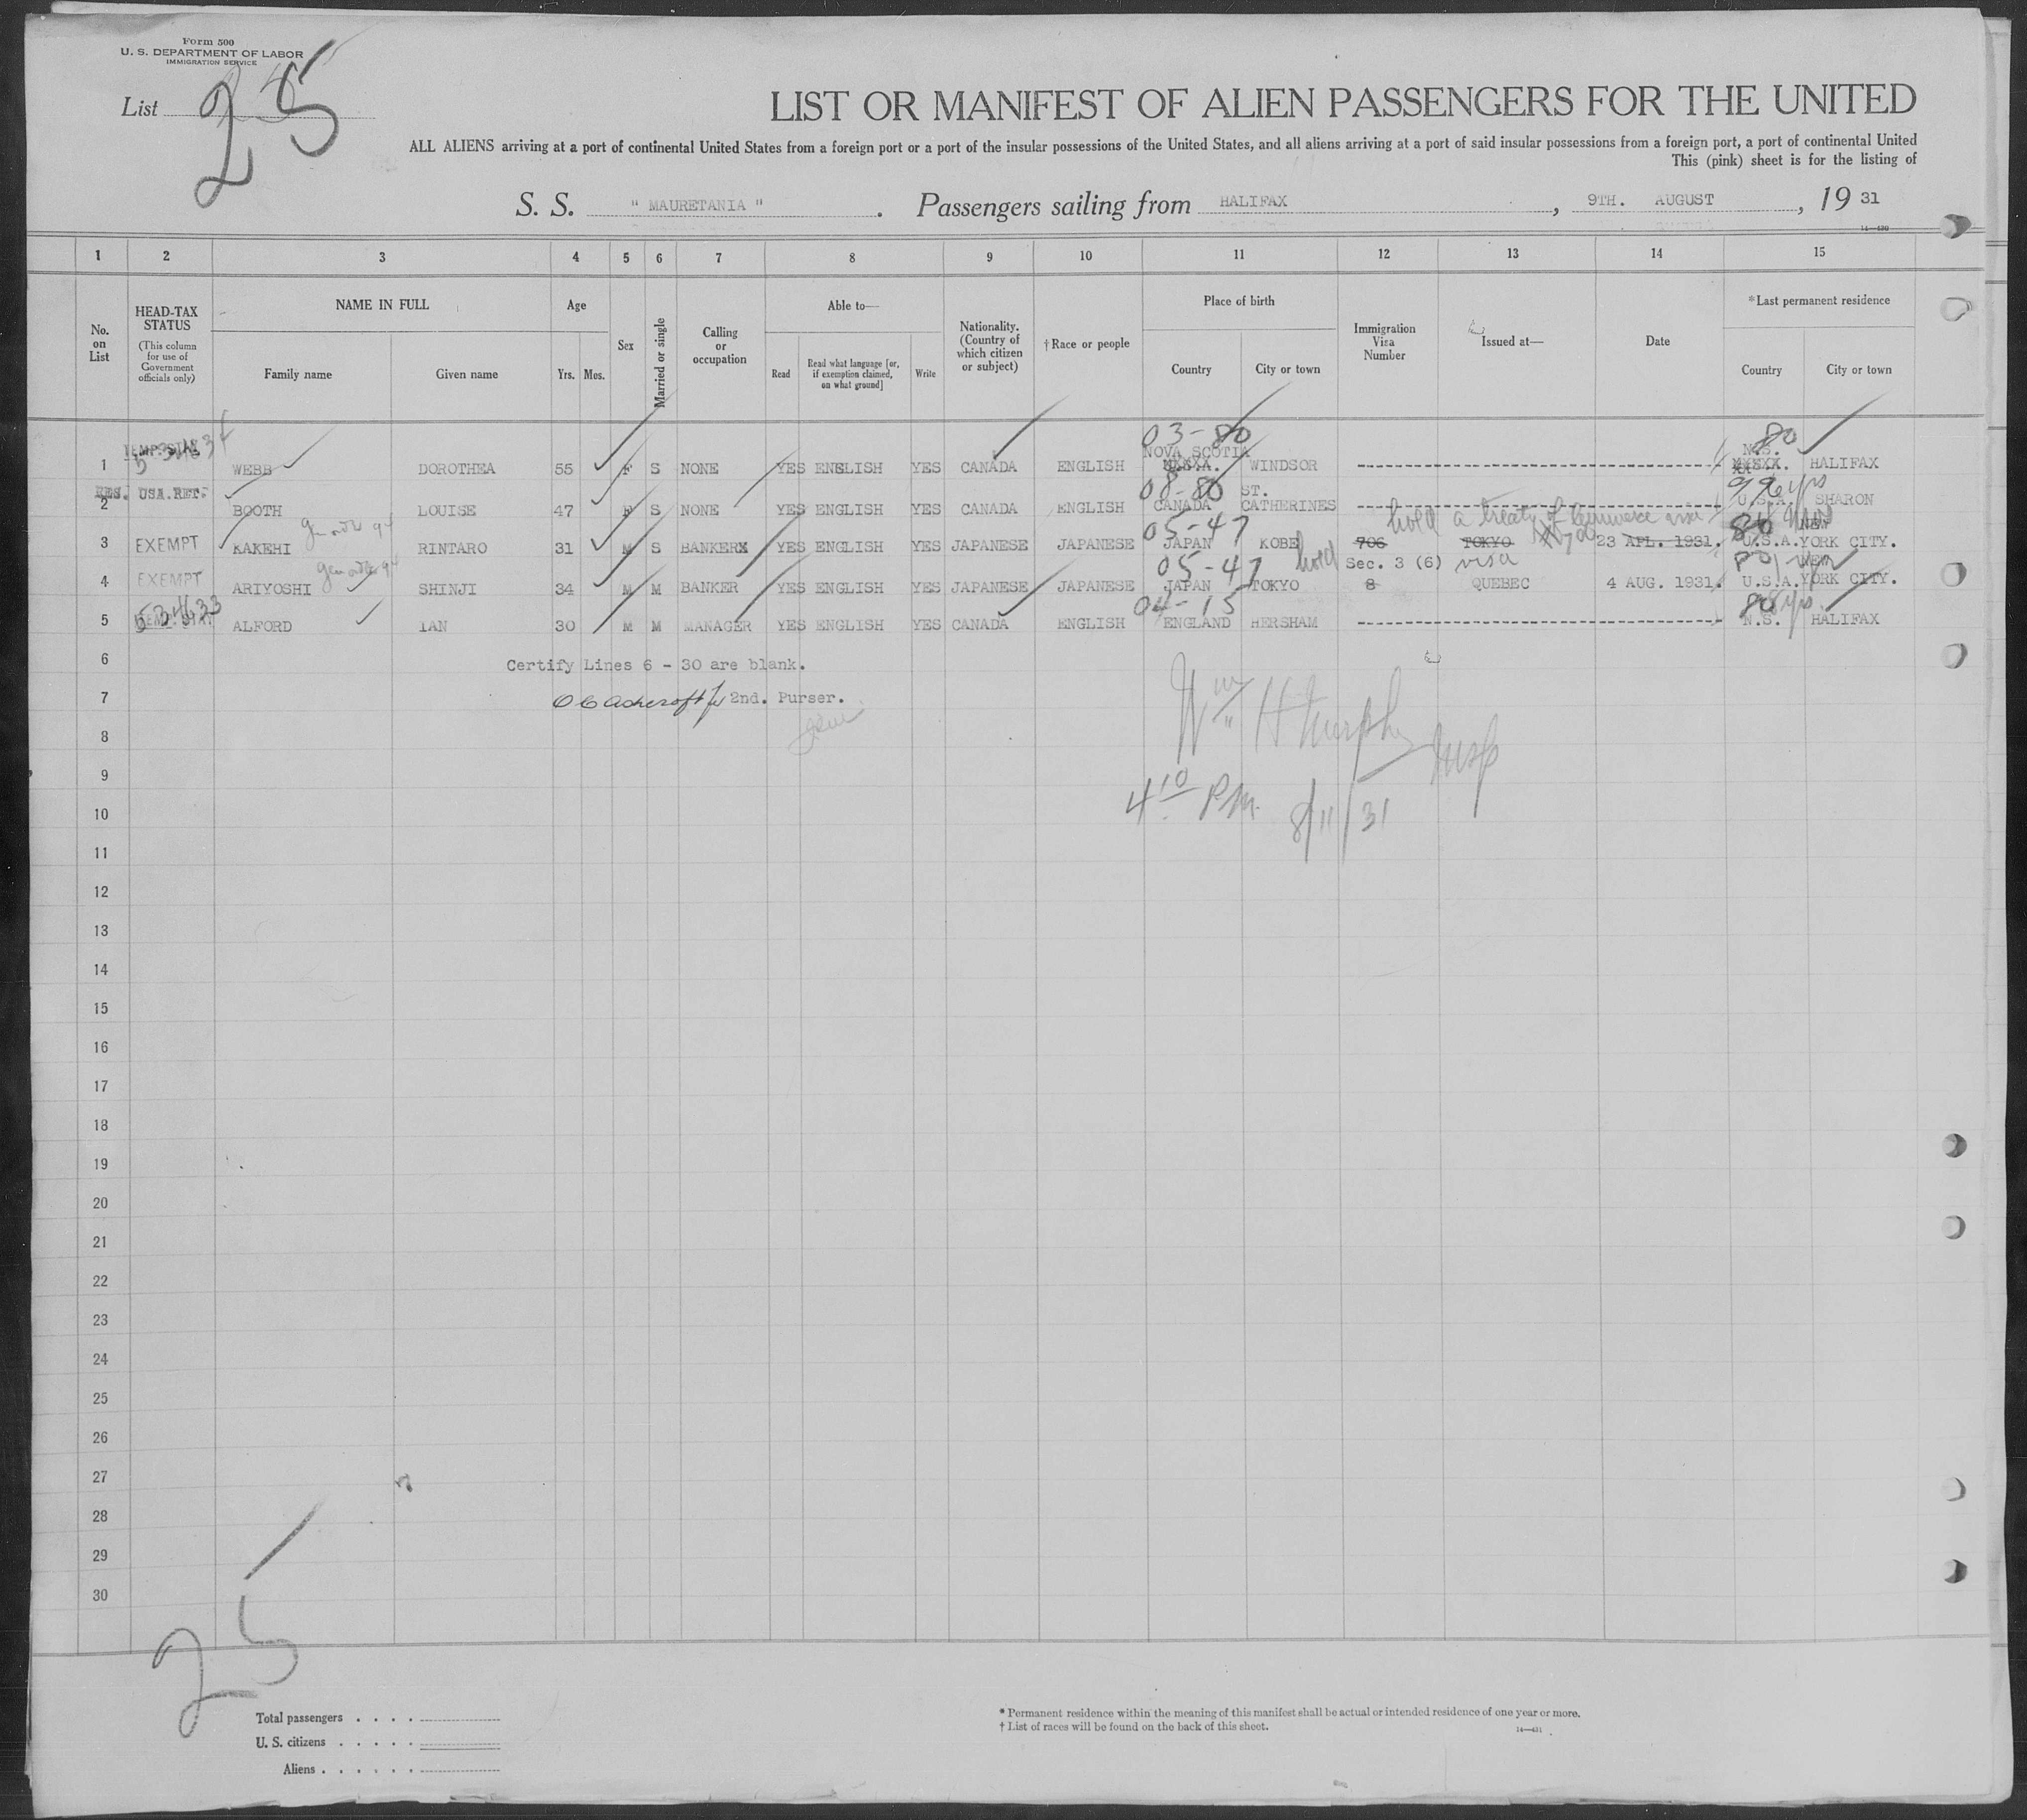 Form 500
U. S. DEPARTMENT OF LABOR
IMMIGRATION SERVICE
List 25
LIST OR MANIFEST OF ALIEN PASSENGERS FOR THE UNITED
ALL ALIENS arriving at a port of continental United States from a foreign port or a port of the insular possessions of the United States, and all aliens arriving at a port of said insular possessions from a foreign port, a port of continental United
This (pink) sheet is for the listing of
S. S. " MAURETANIA " . Passengers sailing from HALIFAX , 9TH. AUGUST , 19 31
14—430
1 2 3 4 5 6 7 8 9 10 11 12 13 14 15
No. on List
HEAD-TAX STATUS
(This column for use of Government officials only)
NAME IN FULL
Family name Given name
Age
Yrs. Mos.
Sex
Married or single
Calling or occupation
Able to—
Read Read what language [or, if exemption claimed, on what ground] Write
Nationality. (Country of which citizen or subject)
†Race or people
Place of birth
Country City or town
Immigration Visa Number
Issued at—
Date
*Last permanent residence
Country City or town
03-80 80
NOVA SCOTIA N.S.
1 WEBB DOROTHEA 55 F S NONE YES ENGLISH YES CANADA ENGLISH WINDSOR HALIFAX
RES. USA.RET. 08-80 ST.
2 BOOTH LOUISE 47 F S NONE YES ENGLISH YES CANADA ENGLISH CANADA CATHERINES U.S.A. SHARON
05-47 hold a treaty of Commerce visa NEW
3 EXEMPT KAKEHI RINTARO 31 M S BANKERX YES ENGLISH YES JAPANESE JAPANESE JAPAN KOBE 706 TOKYO 23 APL. 1931. U.S.A. YORK CITY.
05-47 hold Sec. 3 (6) visa NEW
4 EXEMPT ARIYOSHI SHINJI 34 M M BANKER YES ENGLISH YES JAPANESE JAPANESE JAPAN TOKYO 8 QUEBEC 4 AUG. 1931. U.S.A. YORK CITY.
04-15 80
5 ALFORD IAN 30 M M MANAGER YES ENGLISH YES CANADA ENGLISH ENGLAND HERSHAM N.S. HALIFAX
6 Certify Lines 6 - 30 are blank.
7 2nd. Purser.
Wm H Murphy Insp
8
9
4 10 P.M. 8/11/31
10
11
12
13
14
15
16
17
18
19
20
21
22
23
24
25
26
27
28
29
30
25
Total passengers . . . .
U. S. citizens . . . . .
Aliens . . . . . .
* Permanent residence within the meaning of this manifest shall be actual or intended residence of one year or more.
† List of races will be found on the back of this sheet.
14—431